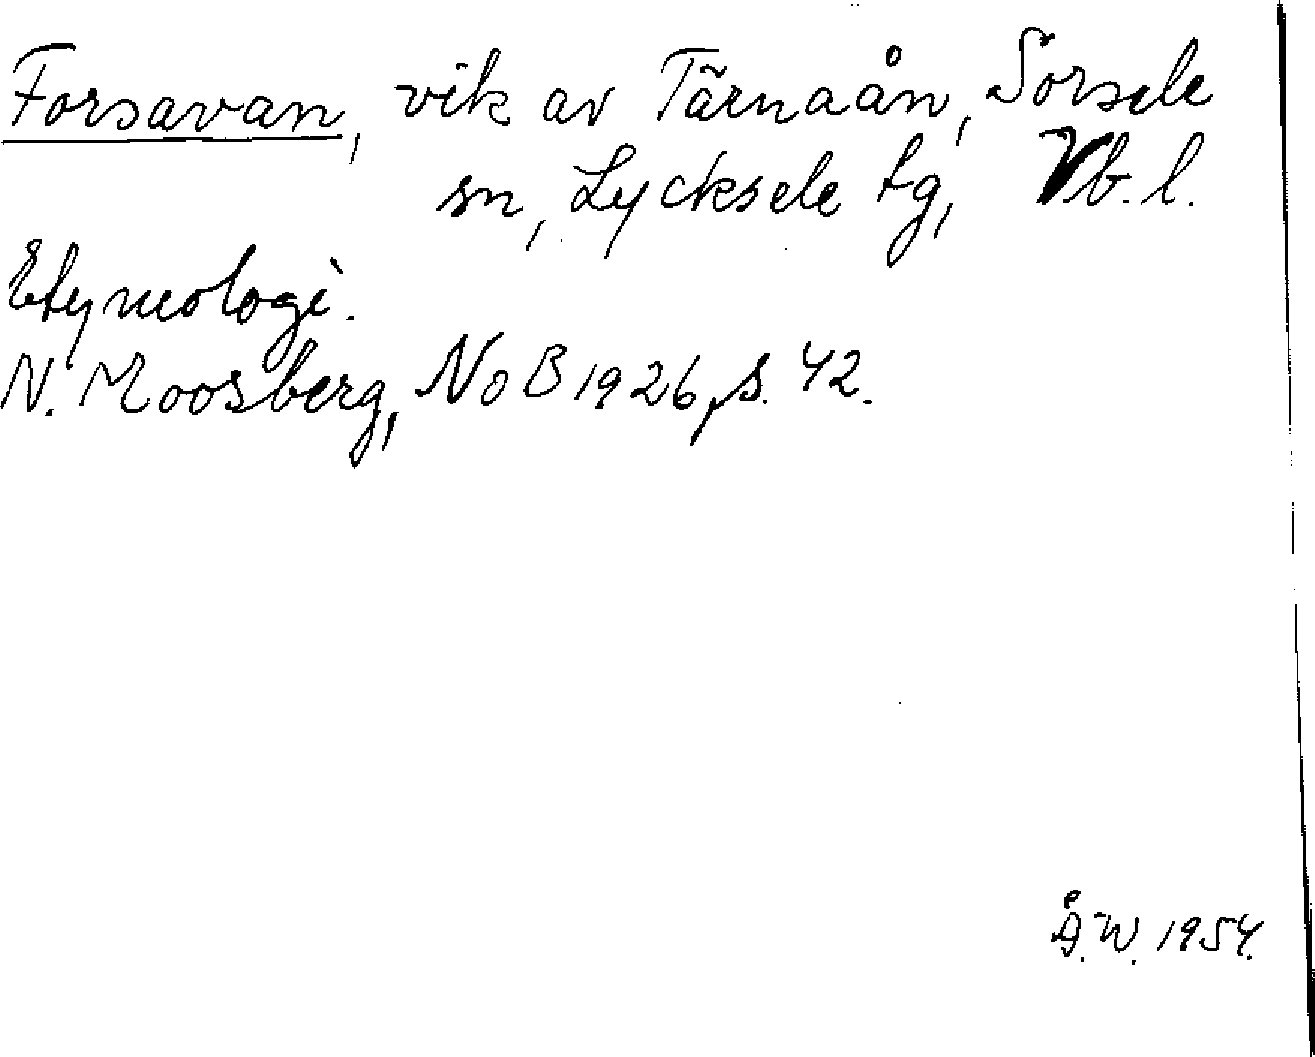 Forsavan, vik av Tärnaån, Sorsele
sn, Lycksele tg, Vb. l.
Etymologi.
N. Moosberg, NoB 1926, s. 42.
Å.W. 1954.